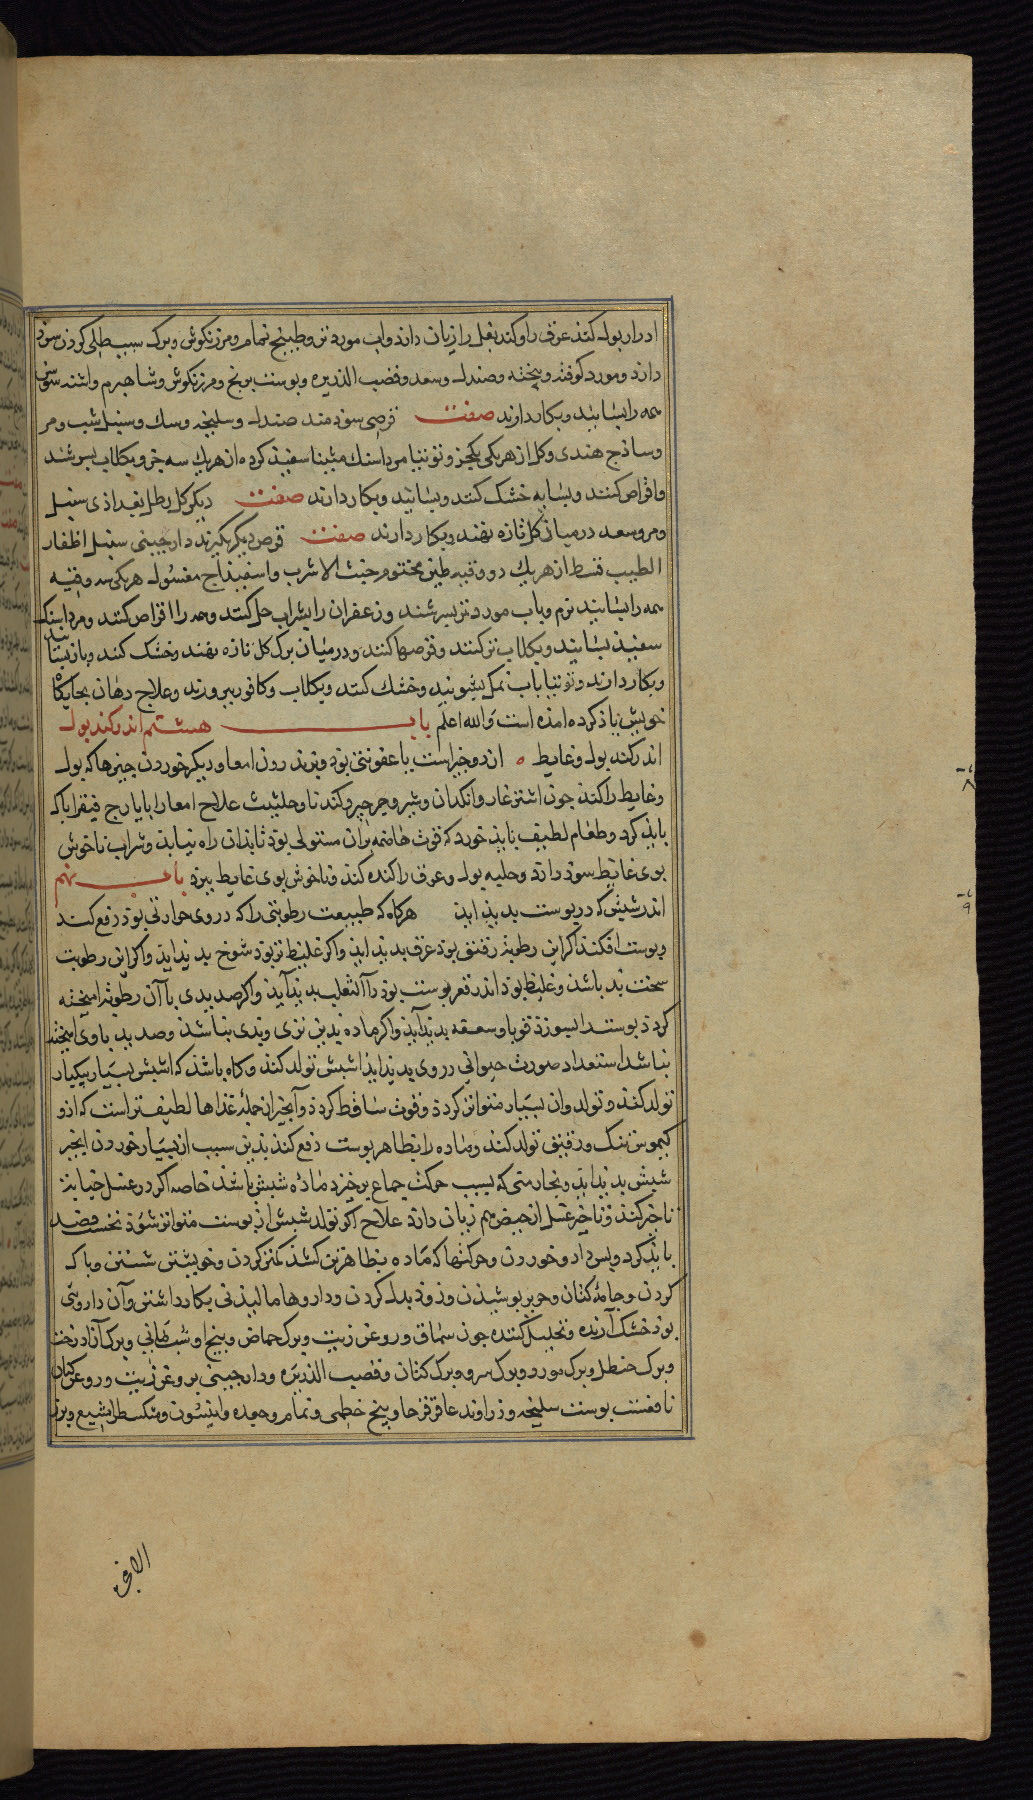 ادرار بول کند عرق را و کند بغل را زیان دارد و اب مورد تر و طبیخ نمام و مرزنکوش و برک سیب طلی کردن سود
دارد و مورد کوفته و پخته و صندل و سعد و قصب الذریره و پوست ترنج و مرزنکوش و شاهبرم و اشنه
همه را بسایند و بکار دارند صفت قرصی سودمند صندل و سلیخه و سک و سنبل شب و مر
و ساذج هندی و کل از هر یکی یکجز و توتیا مرداسنک سفید کرده از هر یک سه جز و بکلاب بسرشند
و اقراص کنند و بسایه خشک کنند و بسایند و بکار دارند صفت دیکر کل رطل بغدادی سنبل
و مر و سعد در میان کل تازه نهند و بکار دارند صفت قرص دیکر بکیرند دارچینی سنبل اظفار
الطیب قسط از هر یک دو وقیه طین مختوم خبث الاشرب و اسفیذاج مغسول هر یکی سه وقیه
همه را بسایند نرم و باب مورد تر بسرشند و زعفران را بشراب حل کنند و همه را اقراص کنند و مرداسنک
سفید بسایند و بکلاب تر کنند و قرصها کنند و در میان برک کل تازه نهند و خشک کنند و باز بسایند
و بکار دارند و توتیا باب نمک بشویند و خشک کنند و بکلاب و کافور بپرورند و علاج دهان بجایکاه
خویش یاذ کرده امذه است والله اعلم باب هشتم اندر کند بول
اندر کند بول و غایط ه از دو چیز است یا عفونتی بود و بزند درون امعا و دیکر خوردن چیزها که بول
و غایط را کند چون اشترغار و انکدان و سیر و جرجیر و کندنا و حلتیت علاج امعا را بایارج فیقرا پاک
بایذ کرد و طعام لطیف بایذ خورد که قوت هاضمه بران مستولی بوذ تا بذان راه نیابذ و شراب ناخوش
بوی غایط سوذ دارد و حلبه بول و عرق را کنده کند و ناخوش بوی غایط ببرد باب نهم
اندر شپش که در پوست بدید اید هرکاه که طبیعت رطوبتی را که در وی حرارتی بود دفع کند
و پوست افکند اکر این رطوبة رقیق بوذ عرق بدید اید و اکر غلیظ تر بوذ شوخ بدید اید و اکر این رطوبت
سخت بد باشد و غلیظ بوذ اندر قعر پوست بوذ داآلثعلب بدید آید و اکر صدیدی با آن رطوبة امیخته
کردد پوست را بسوزد قوبا و سعفه بدید آید و اکر ماده بدین تری و بدی نباشد و صدید با وی امیخته
نباشد استعداد صورت حیوانی در وی بدید اید اشپش تولد کند و کاه باشد که اشپش بسیار بیکبار
تولد کند و تولد وان بسیار متواتر کردد و قوت ساقط کردد و آنجیر از جمله غذاها لطیفتر است که ازو
کیموس تنک و رقیق تولد کند و ماده را بظاهر پوست دفع کند بدین سبب از بسیار خوردن انجیر
شپش بدید اید و بخارهتی که بسبب حرکت جماع برخیزد ماده شپش باشد خاصه اکر در غسل جنابة
تاخیر کنند و تاخیر غسل از حیض هم زیان دارد علاج اکر تولد شپش از پوست متواتر شود نخست فصد
بایذ کرد و پس دارو خوردن و حرکتها که ماده بظاهر تن کشد کمتر کردن و خویشتن شستن و پاک
کردن و جامهٔ کتان و حریر پوشیدن و زود بدل کردن و داروها مالیدنی بکار داشتن و آن داروئی
بوذ خشک آرنده و تحلیل کننده چون سماق و روغن زیت و برک حماض و بیخ او شب یمانی و برک آزاد درخت
و برک حنظل و برک مورد و برک سرو و برک کتان و قصب الذریره و دارچینی بروغن زیت و روغن کتان
پوست سلیخه و زراوند عاقرقرحا و بیخ خطمی و نمام و جعده و انیسون و مشکطرامشیع و برک